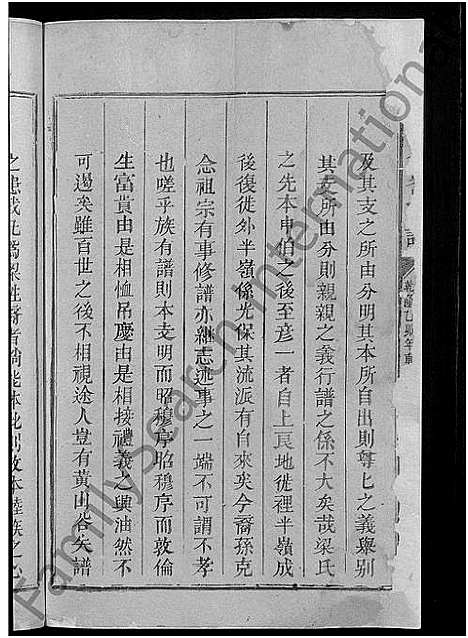 及其支之所由分明其本所自出則尊匕之義舉别
其支所由分則親親之義行譜之係不大矣哉梁氏
之先本申伯之後至彦一者自上㫰地徙裡半嶺成
後復徙外半嶺係光保其流派有自來矣今裔孫克
念祖宗有事修譜亦継志述事之一端不可謂不孝
也嗟乎族有譜則本支明而昭穆序昭穆序而敦倫
生富貴由是相恤吊慶由是相接禮義之與油然不
可遏矣雖百世之後不相視途人豈有黄山谷失譜
FamilySearch International